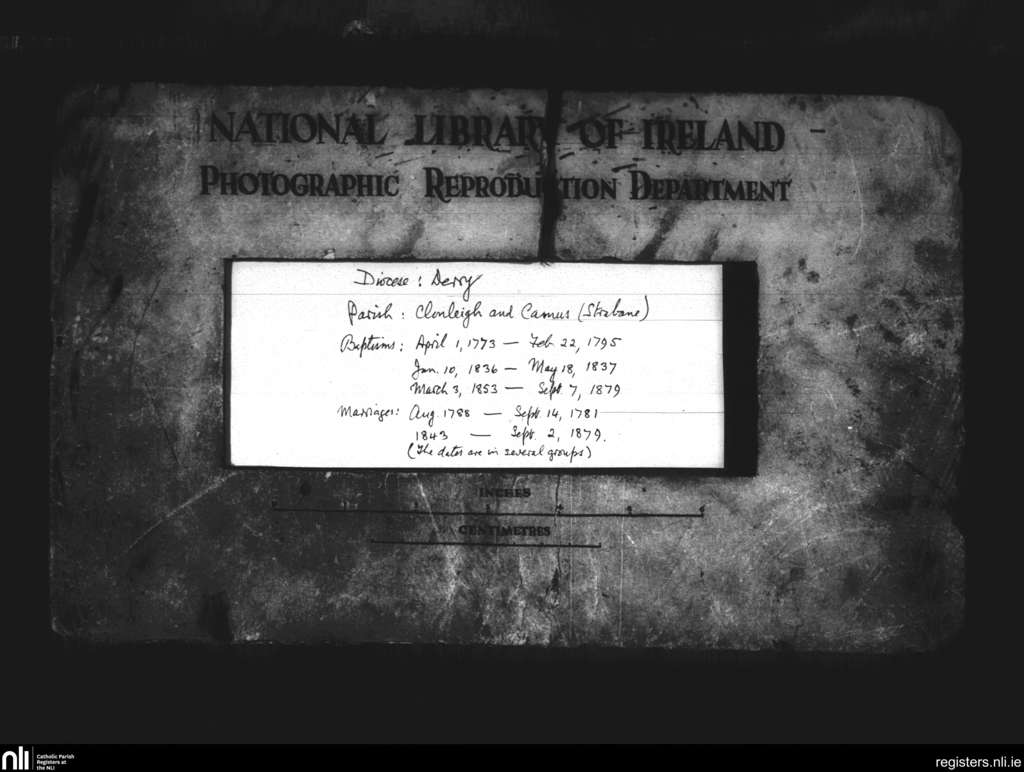 NATIONAL LIBRARY OF IRELAND
PHOTOGRAPHIC REPRODUCTION DEPARTMENT
Diocese: Derry
Parish: Clonleigh and Camus (Strabane)
Baptisms: April 1, 1773 — Feb. 22, 1795
Jan. 10, 1836 — May 18, 1837
March 3, 1853 — Sept. 7, 1879
Marriages: Aug. 1788 — Sept. 14, 1781
1843 — Sept. 2, 1879.
(The dates are in several groups)
INCHES
CENTIMETRES
nli
Catholic Parish
Registers at
the NLI
registers.nli.ie